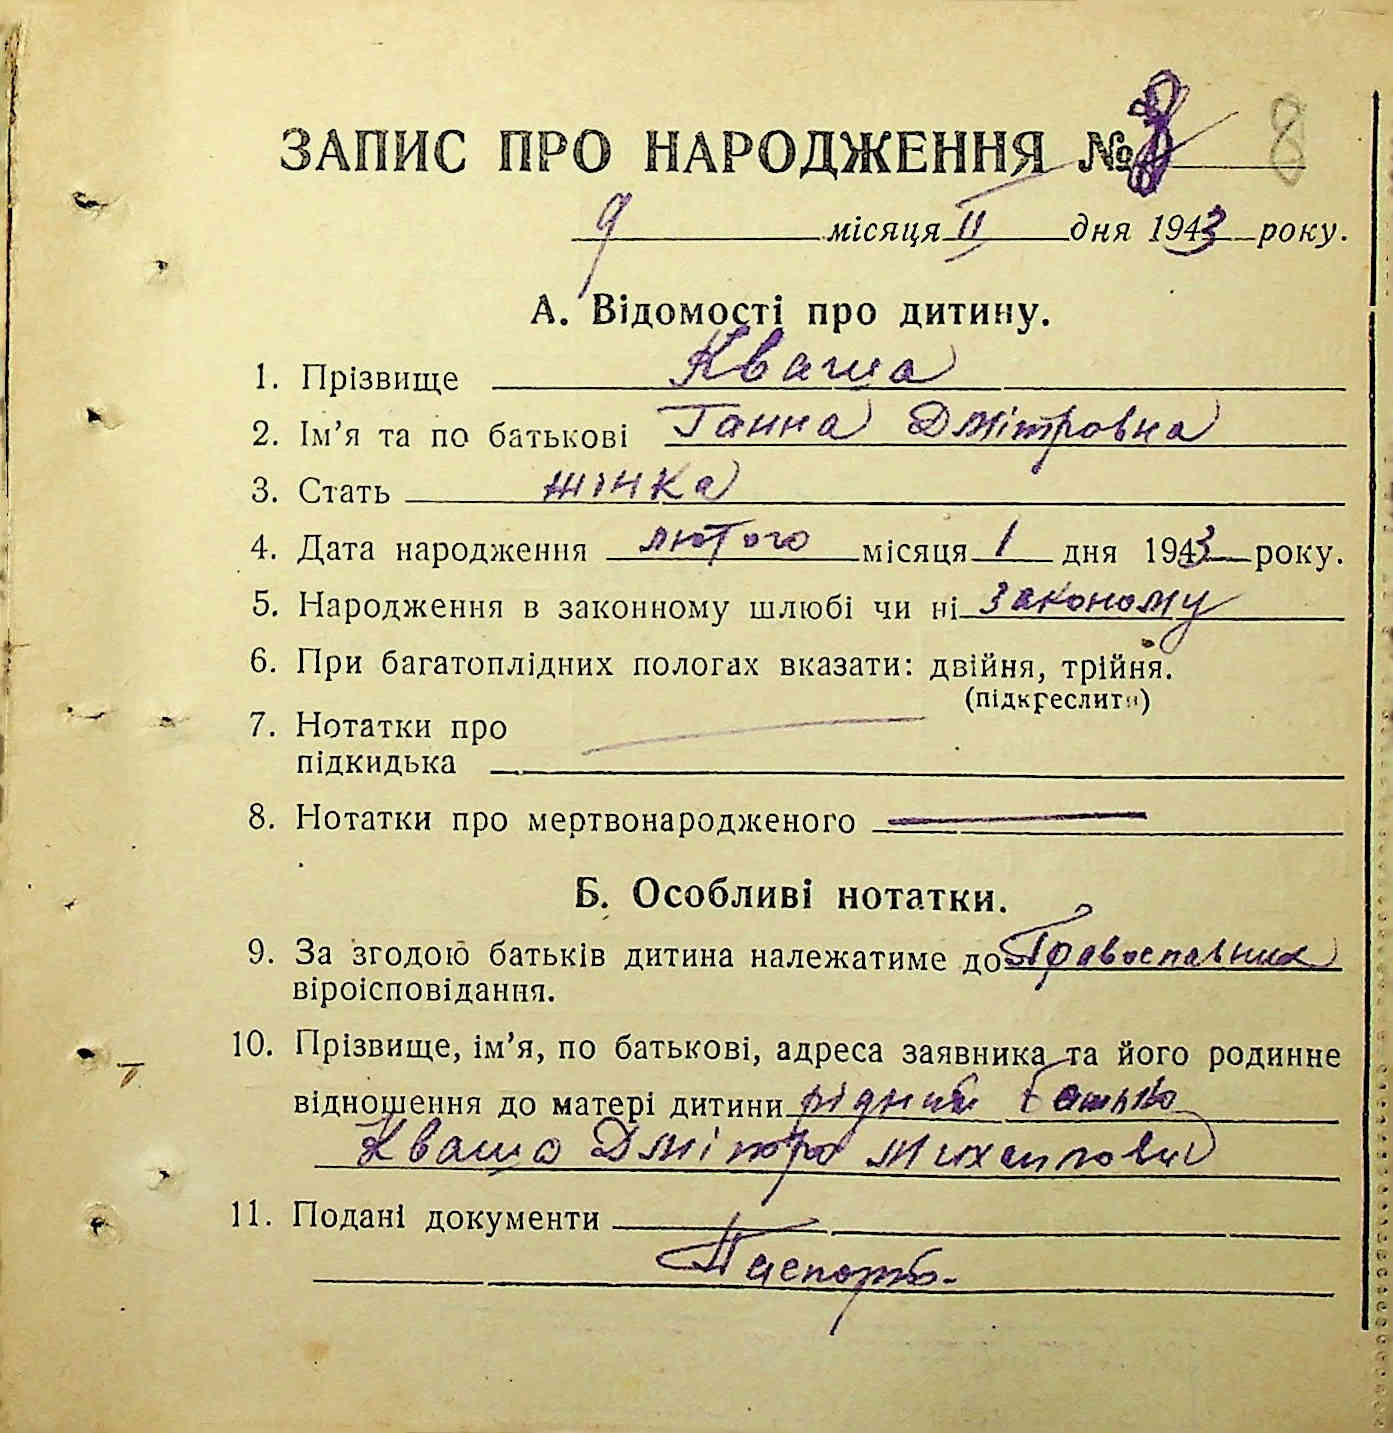 ЗАПИС ПРО НАРОДЖЕННЯ № 8 8
9 місяця II дня 1943 року.
А. Відомості про дитину.
1. Прізвище Кваша
2. Ім’я та по батькові Ганна Дмітровна
3. Стать жінка
4. Дата народження лютого місяця 1 дня 1943 року.
5. Народження в законному шлюбі чи ні законому
6. При багатоплідних пологах вказати: двійня, трійня.
(підкреслити)
7. Нотатки про
підкидька
8. Нотатки про мертвонародженого
Б. Особливі нотатки.
9. За згодою батьків дитина належатиме до Православних
віроісповідання.
10. Прізвище, ім’я, по батькові, адреса заявника та його родинне
відношення до матері дитини рідний батько
Кваша Дмітро Михайлович
11. Подані документи
Паспорт